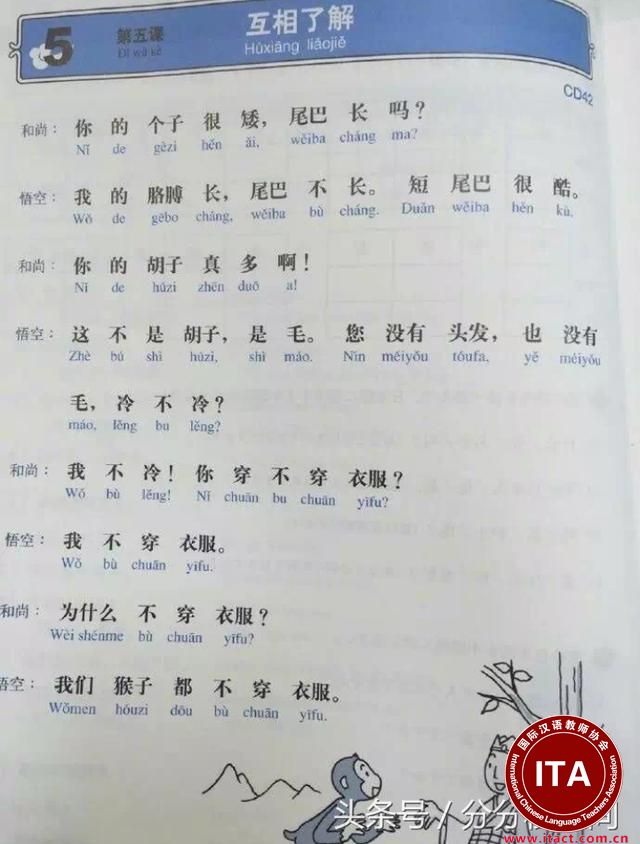 5 第五课 互相了解
Dì wǔ kè Hùxiāng liǎojiě
CD42
和尚： 你 的 个子 很 矮， 尾巴 长 吗？
Nǐ de gèzi hěn ǎi, wěiba cháng ma?
悟空： 我 的 胳膊 长， 尾巴 不 长。 短 尾巴 很 酷。
Wǒ de gēbo cháng, wěiba bù cháng. Duǎn wěiba hěn kù.
和尚： 你 的 胡子 真 多 啊！
Nǐ de húzi zhēn duō a!
悟空： 这 不 是 胡子， 是 毛。 您 没有 头发， 也 没有
Zhè bú shì húzi, shì máo. Nín méiyǒu tóufa, yě méiyǒu
毛， 冷 不 冷？
máo, lěng bu lěng?
和尚： 我 不 冷！ 你 穿 不 穿 衣服？
Wǒ bù lěng! Nǐ chuān bu chuān yīfu?
悟空： 我 不 穿 衣服。
Wǒ bù chuān yīfu.
和尚： 为什么 不 穿 衣服？
Wèi shénme bù chuān yīfu?
悟空： 我们 猴子 都 不 穿 衣服。
Wǒmen hóuzi dōu bù chuān yīfu.
国际汉语教师协会
ITA
International Chinese Language Teachers Association
头条号/分分
www.itact.com.cn